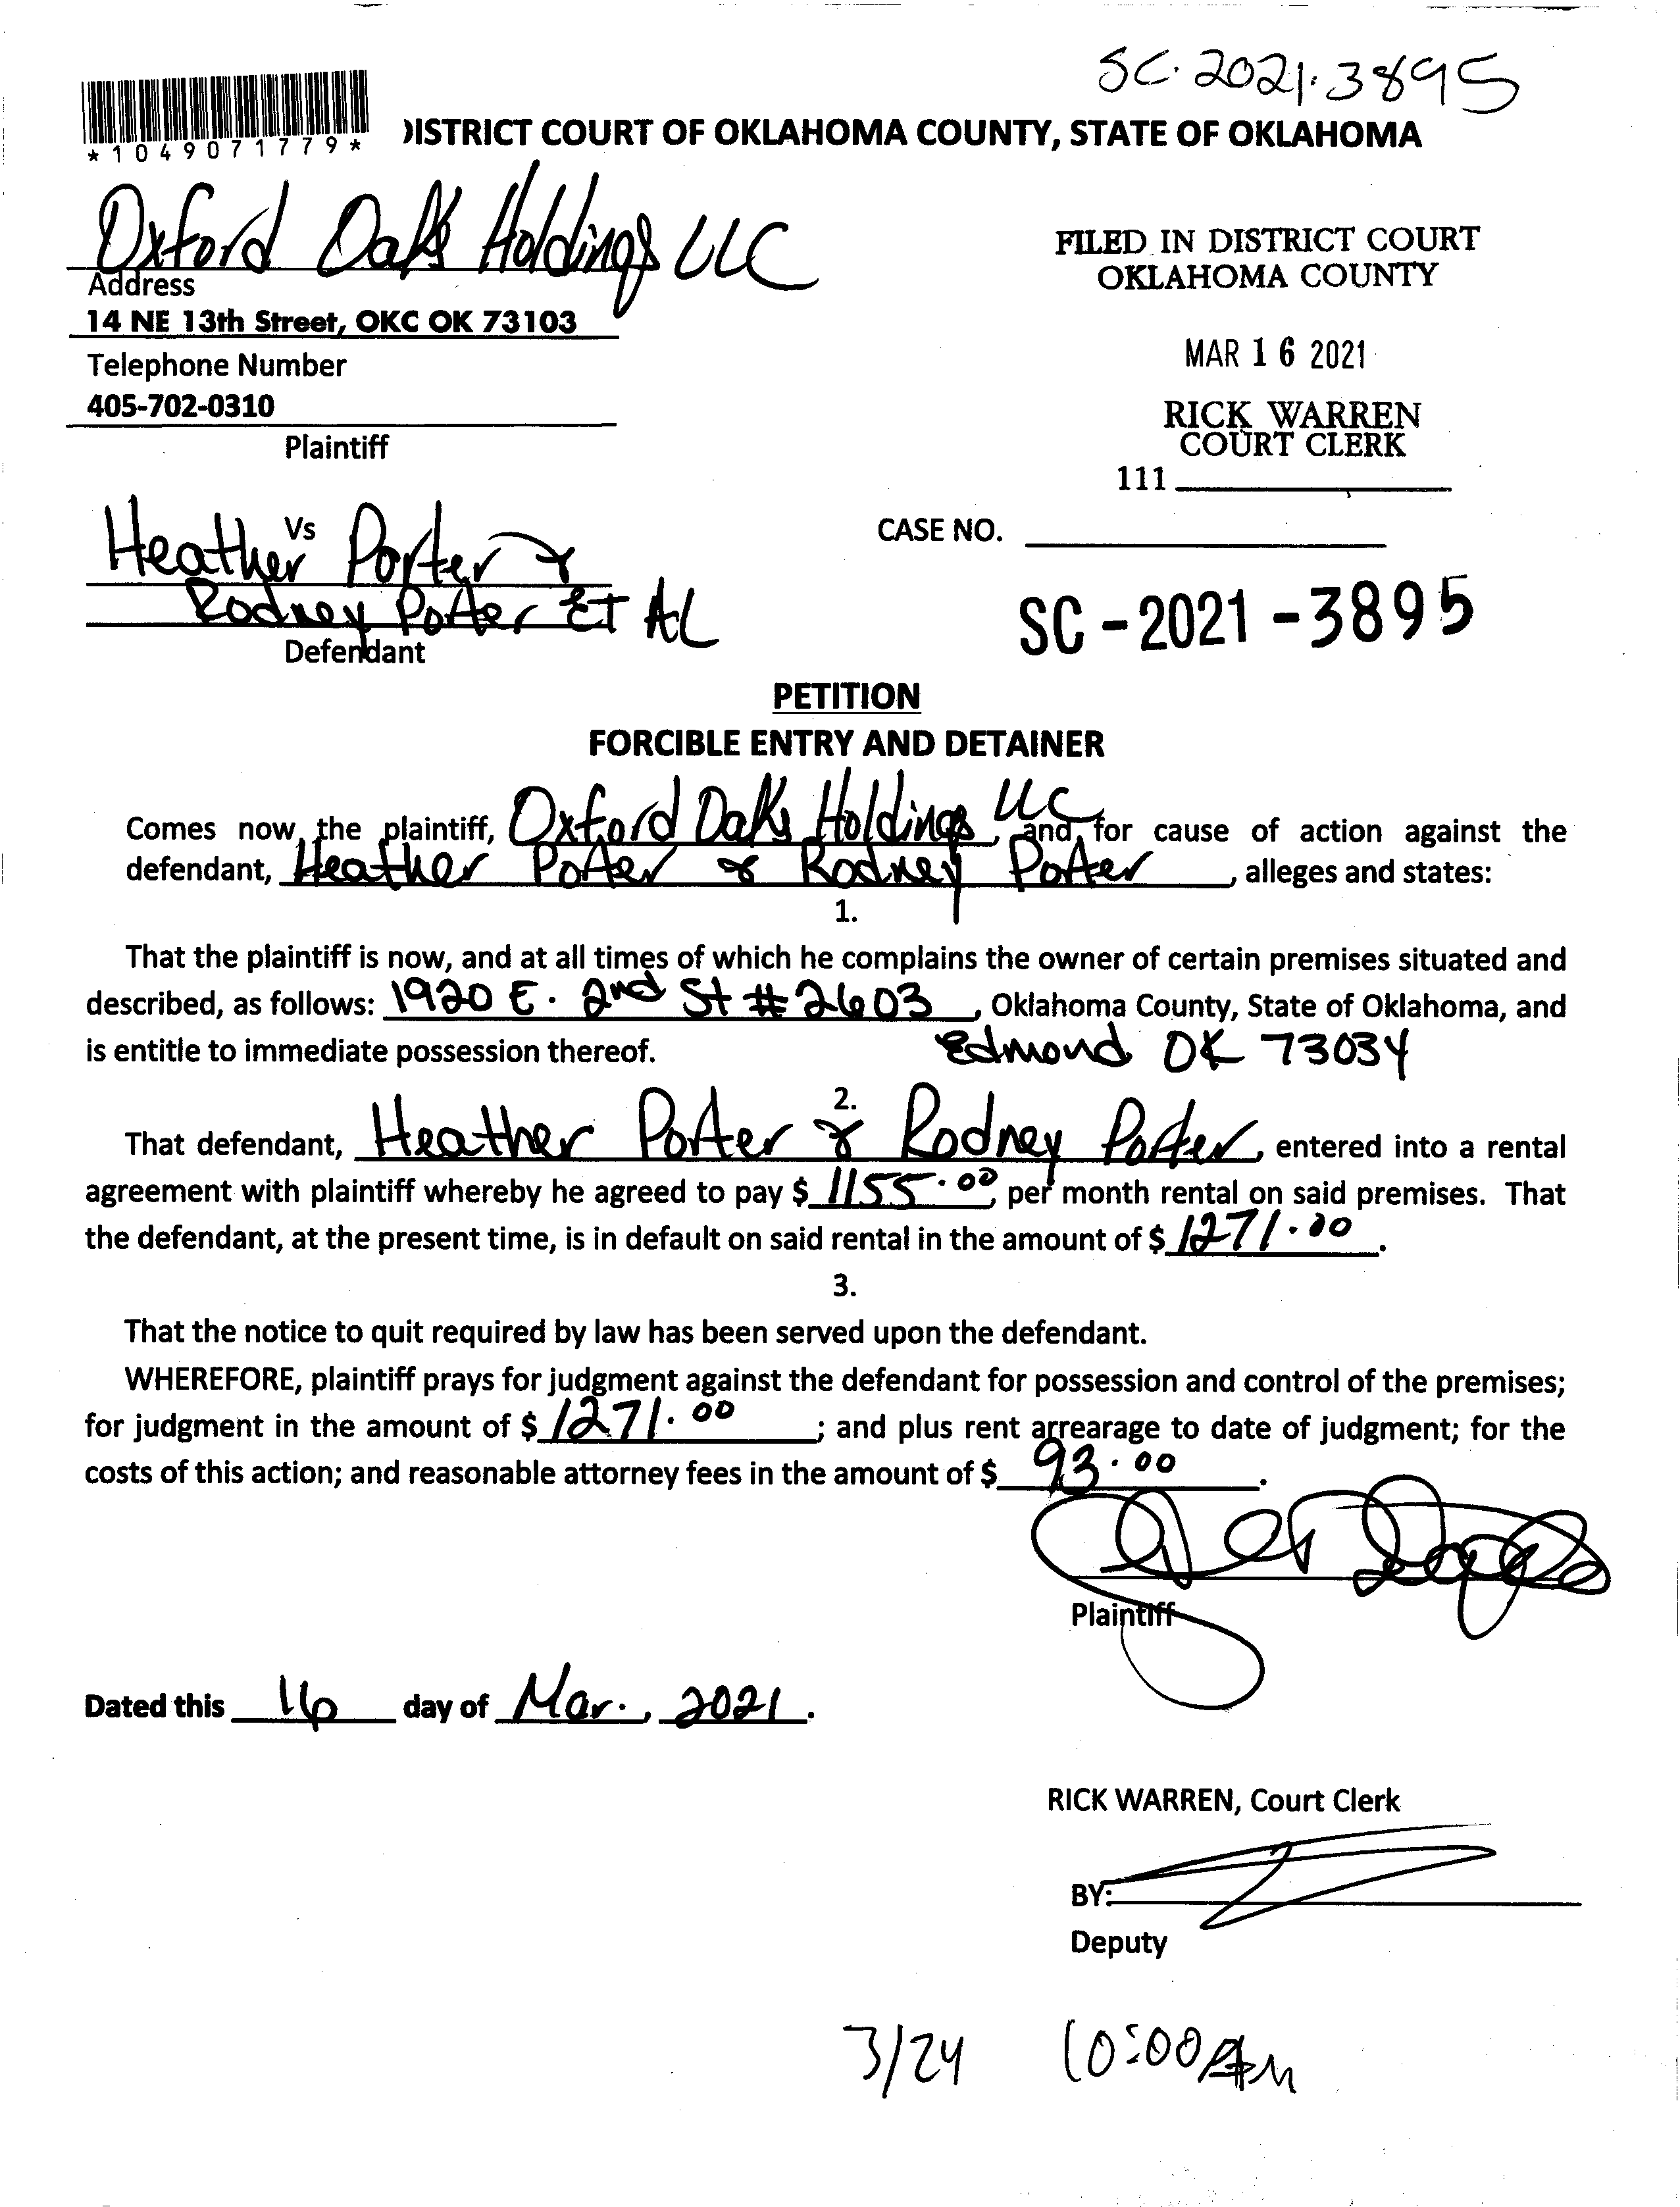 SC-2021-3895
*1049071779*
DISTRICT COURT OF OKLAHOMA COUNTY, STATE OF OKLAHOMA
Oxford Oaks Holdings LLC
Address
14 NE 13th Street, OKC OK 73103
Telephone Number
405-702-0310
Plaintiff
FILED IN DISTRICT COURT
OKLAHOMA COUNTY
MAR 16 2021
RICK WARREN
COURT CLERK
111
Vs
Heather Porter &
Rodney Porter ET AL
Defendant
CASE NO.
SC-2021-3895
PETITION
FORCIBLE ENTRY AND DETAINER
Comes now, the plaintiff, Oxford Oaks Holdings LLC, and, for cause of action against the
defendant, Heather Porter & Rodney Porter, alleges and states:
1.
That the plaintiff is now, and at all times of which he complains the owner of certain premises situated and
described, as follows: 1920 E. 2nd St #2603, Oklahoma County, State of Oklahoma, and
is entitle to immediate possession thereof. Edmond OK 73034
2.
That defendant, Heather Porter & Rodney Porter, entered into a rental
agreement with plaintiff whereby he agreed to pay $ 1155.00, per month rental on said premises. That
the defendant, at the present time, is in default on said rental in the amount of $ 1271.00.
3.
That the notice to quit required by law has been served upon the defendant.
WHEREFORE, plaintiff prays for judgment against the defendant for possession and control of the premises;
for judgment in the amount of $ 1271.00; and plus rent arrearage to date of judgment; for the
costs of this action; and reasonable attorney fees in the amount of $ 93.00.
Plaintiff
Dated this 16 day of Mar., 2021.
RICK WARREN, Court Clerk
BY:
Deputy
3/24 10:00 AM